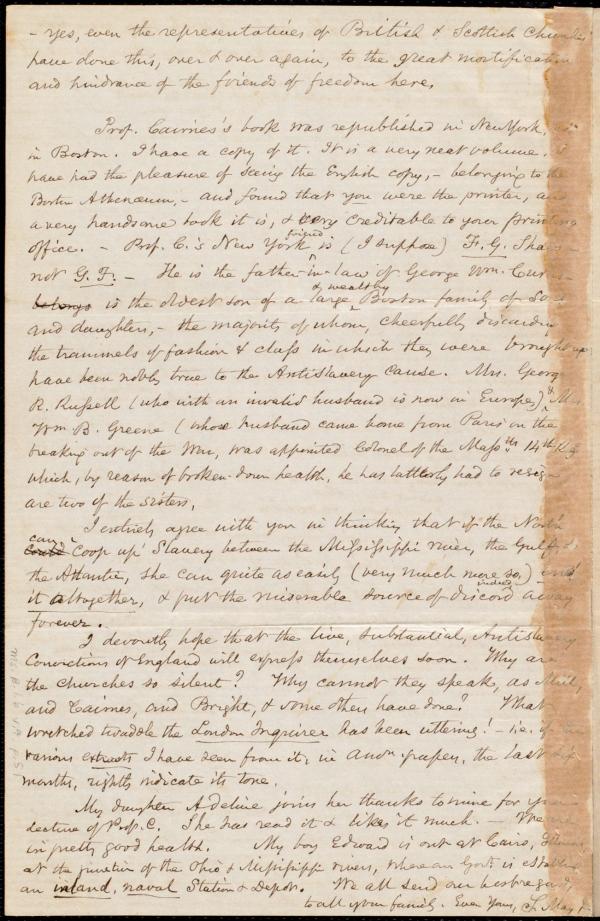 - yes, even the representatives of British & Scottish Churches
have done this, over & over again, to the great mortification
and hindrance of the friends of freedom here.
Prof. Cairnes's book was republished in New York,
in Boston. I have a copy of it. It is a very neat volume.
have had the pleasure of seeing the English copy,- belonging to the
Boston Athenæum,- and found that you were the printer, and
a very handsome book it is, & very creditable to your printing
office. - Prof. C.'s New York friend is (I suppose) F. G. Shaw
not G. F. - He is the father-in-law of George Wm. Curtis
belongs is the oldest son of a large & wealthy Boston family of Sons
and daughters,- the majority of whom, cheerfully discarding
the trammels of fashion & class in which they were brought up
have been nobly true to the Antislavery cause. Mrs. George
R. Russell (who with an invalid husband is now in Europe) & Mrs.
Wm B. Greene (whose husband came home from Paris on the
breaking out of the War, was appointed Colonel of the Massts 14th Reg
which, by reason of broken-down health, he has latterly had to resign
are two of the sisters.
I entirely agree with you in thinking that if the North
could can 'coop up' Slavery between the Mississippi river, the Gulf &
the Atlantic, she can quite as easily (very much more so, indeed) end
it altogether, & put the miserable source of discord away
forever.
I devoutly hope that the live, substantial, Antislavery
Convictions of England will express themselves soon. Why are
the Churches so silent? Why cannot they speak, as Mill,
and Cairnes, and Bright, & some others have done? What
wretched twaddle the London Inquirer has been uttering! - i.e. if the
various extracts I have seen from it, in Amn papers, the last six
months, rightly indicate its tone.
My daughter Adeline joins her thanks to mine for your
lecture of Prof. C. She has read it & likes it much. - We are
in pretty good health. My boy Edward is out at Cairo, Illinois,
at the junction of the Ohio & Mississippi rivers, where our Govt. is establishing
an inland, naval Station & Depot. We all send our best regards,
to all your family. Ever Yours, S. May Jr.